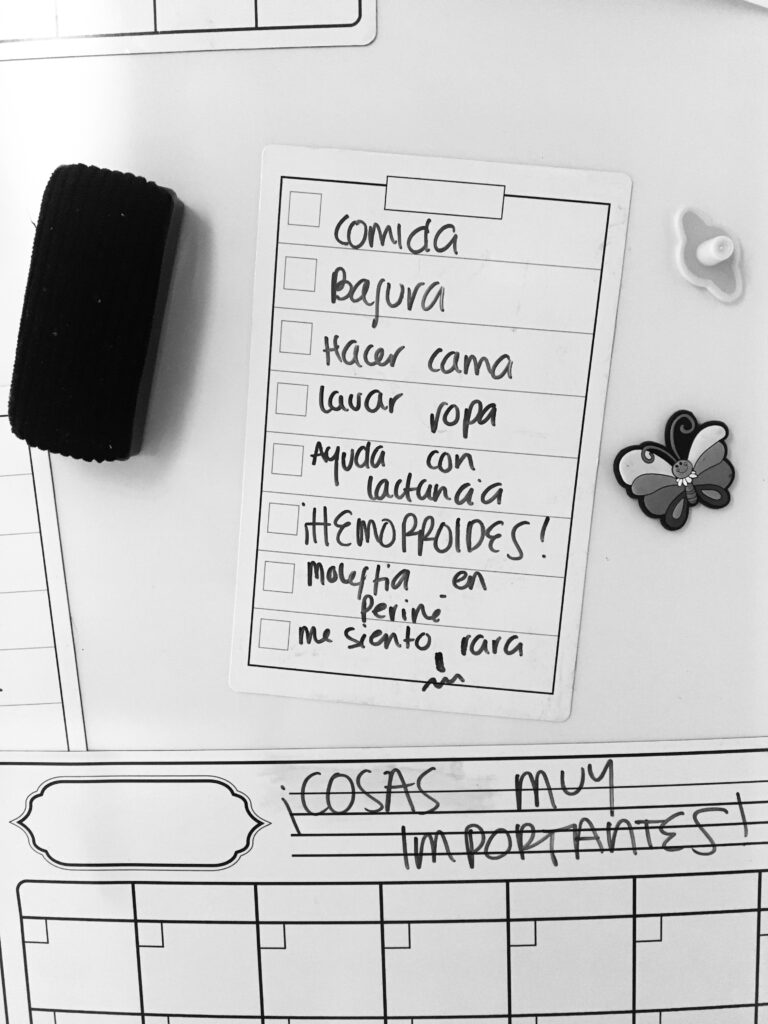 comida
Basura
Hacer cama
lavar ropa
Ayuda con
lactancia
¡HEMORROIDES!
Molestia en
Periné
me siento rara
¡COSAS MUY
IMPORTANTES!